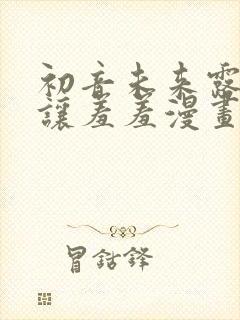 初音未来露
讓羞羞漫畫
冒鈷鋒